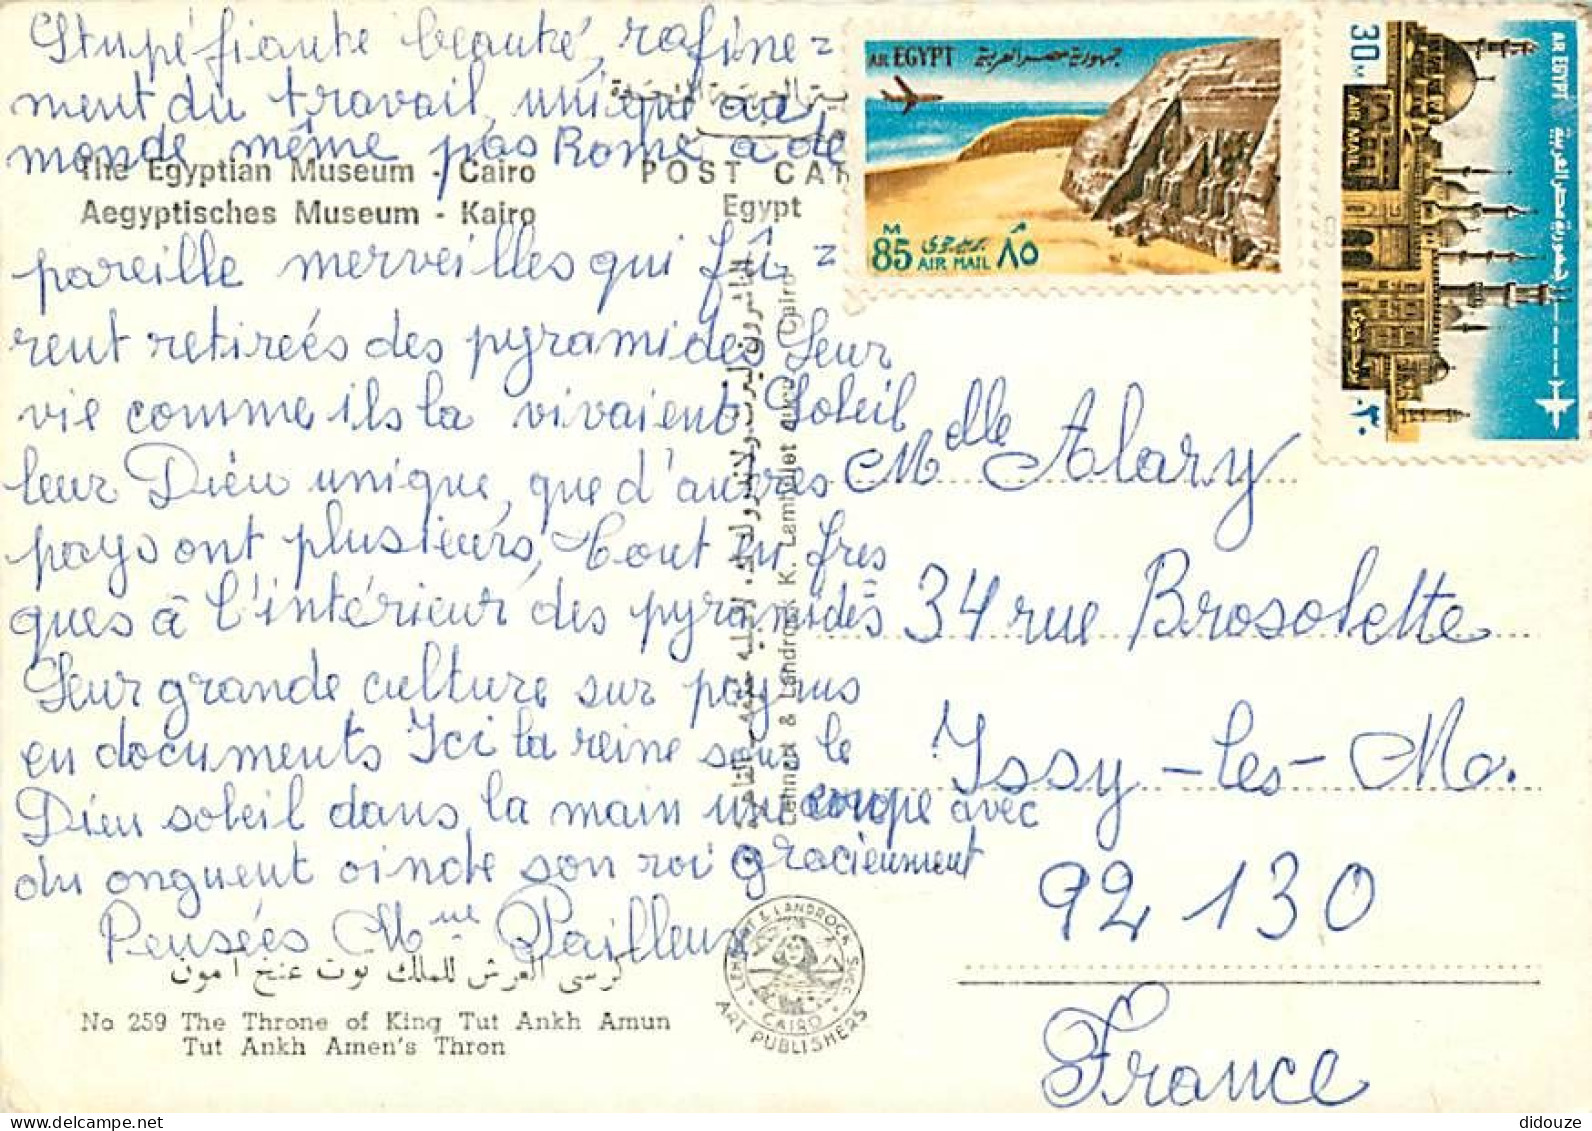 Stupéfiante beauté, rafine=
ment du travail, unique au
monde même pas Rome a de
The Egyptian Museum - Cairo
Aegyptisches Museum - Kairo
POST CAR
Egypt
pareille merveilles qui fû=
rent retireés des pyramides Leur
vie comme ils la vivaient Soleil
leur Dieu unique, que d'autres
pays ont plusieurs, Tout en fres
ques à l'intérieur des pyramides
Leur grande culture sur papyrus
en documents Ici la reine sous le
Dieu soleil dans la main une coupe avec
du onguent ointe son roi gracieusement
Pensées Mme Pailleux
كرسى العرش للملك توت عنخ آمون
No 259 The Throne of King Tut Ankh Amun
Tut Ankh Amen's Thron
Lehnert & Landrock K. Lambelet succ. Cairo
LEHNERT & LANDROCK SUCC.
CAIRO
ART PUBLISHERS
AR EGYPT جمهورية مصر العربية
M
85 بريد جوى ٨٥
AIR MAIL
30 M
AR EGYPT جمهورية مصر العربية
AIR MAIL
بريد جوى
٣٠
Mdlle Alary
34 rue Brosolette
Issy-les-Mo.
92 130
France
didouze